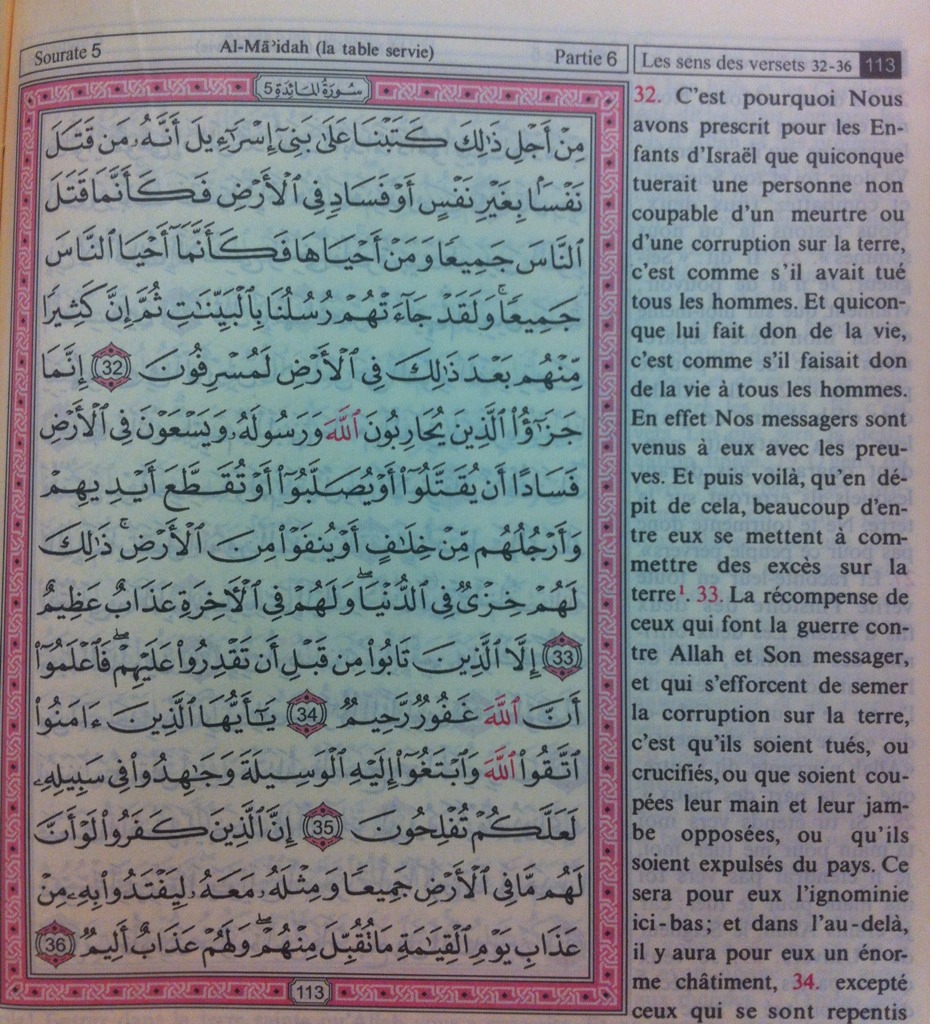 Sourate 5 Al-Mā'idah (la table servie) Partie 6
سُورَةُ المَائِدَةِ 5
مِنْ أَجْلِ ذَٰلِكَ كَتَبْنَا عَلَىٰ بَنِىٓ إِسْرَٰٓءِيلَ أَنَّهُۥ مَن قَتَلَ
نَفْسًۢا بِغَيْرِ نَفْسٍ أَوْ فَسَادٍ فِى ٱلْأَرْضِ فَكَأَنَّمَا قَتَلَ
ٱلنَّاسَ جَمِيعًا وَمَنْ أَحْيَاهَا فَكَأَنَّمَآ أَحْيَا ٱلنَّاسَ
جَمِيعًا ۚ وَلَقَدْ جَآءَتْهُمْ رُسُلُنَا بِٱلْبَيِّنَٰتِ ثُمَّ إِنَّ كَثِيرًا
مِّنْهُم بَعْدَ ذَٰلِكَ فِى ٱلْأَرْضِ لَمُسْرِفُونَ 32 إِنَّمَا
جَزَٰٓؤُا۟ ٱلَّذِينَ يُحَارِبُونَ ٱللَّهَ وَرَسُولَهُۥ وَيَسْعَوْنَ فِى ٱلْأَرْضِ
فَسَادًا أَن يُقَتَّلُوٓا۟ أَوْ يُصَلَّبُوٓا۟ أَوْ تُقَطَّعَ أَيْدِيهِمْ
وَأَرْجُلُهُم مِّنْ خِلَٰفٍ أَوْ يُنفَوْا۟ مِنَ ٱلْأَرْضِ ۚ ذَٰلِكَ
لَهُمْ خِزْىٌ فِى ٱلدُّنْيَا ۖ وَلَهُمْ فِى ٱلْءَاخِرَةِ عَذَابٌ عَظِيمٌ
33 إِلَّا ٱلَّذِينَ تَابُوا۟ مِن قَبْلِ أَن تَقْدِرُوا۟ عَلَيْهِمْ ۖ فَٱعْلَمُوٓا۟
أَنَّ ٱللَّهَ غَفُورٌ رَّحِيمٌ 34 يَٰٓأَيُّهَا ٱلَّذِينَ ءَامَنُوا۟
ٱتَّقُوا۟ ٱللَّهَ وَٱبْتَغُوٓا۟ إِلَيْهِ ٱلْوَسِيلَةَ وَجَٰهِدُوا۟ فِى سَبِيلِهِۦ
لَعَلَّكُمْ تُفْلِحُونَ 35 إِنَّ ٱلَّذِينَ كَفَرُوا۟ لَوْ أَنَّ
لَهُم مَّا فِى ٱلْأَرْضِ جَمِيعًا وَمِثْلَهُۥ مَعَهُۥ لِيَفْتَدُوا۟ بِهِۦ مِنْ
عَذَابِ يَوْمِ ٱلْقِيَٰمَةِ مَا تُقُبِّلَ مِنْهُمْ ۖ وَلَهُمْ عَذَابٌ أَلِيمٌ 36
113
Les sens des versets 32-36 113
32. C'est pourquoi Nous
avons prescrit pour les En-
fants d'Israël que quiconque
tuerait une personne non
coupable d'un meurtre ou
d'une corruption sur la terre,
c'est comme s'il avait tué
tous les hommes. Et quicon-
que lui fait don de la vie,
c'est comme s'il faisait don
de la vie à tous les hommes.
En effet Nos messagers sont
venus à eux avec les preu-
ves. Et puis voilà, qu'en dé-
pit de cela, beaucoup d'en-
tre eux se mettent à com-
mettre des excès sur la
terre¹. 33. La récompense de
ceux qui font la guerre con-
tre Allah et Son messager,
et qui s'efforcent de semer
la corruption sur la terre,
c'est qu'ils soient tués, ou
crucifiés, ou que soient cou-
pées leur main et leur jam-
be opposées, ou qu'ils
soient expulsés du pays. Ce
sera pour eux l'ignominie
ici-bas; et dans l'au-delà,
il y aura pour eux un énor-
me châtiment, 34. excepté
ceux qui se sont repentis